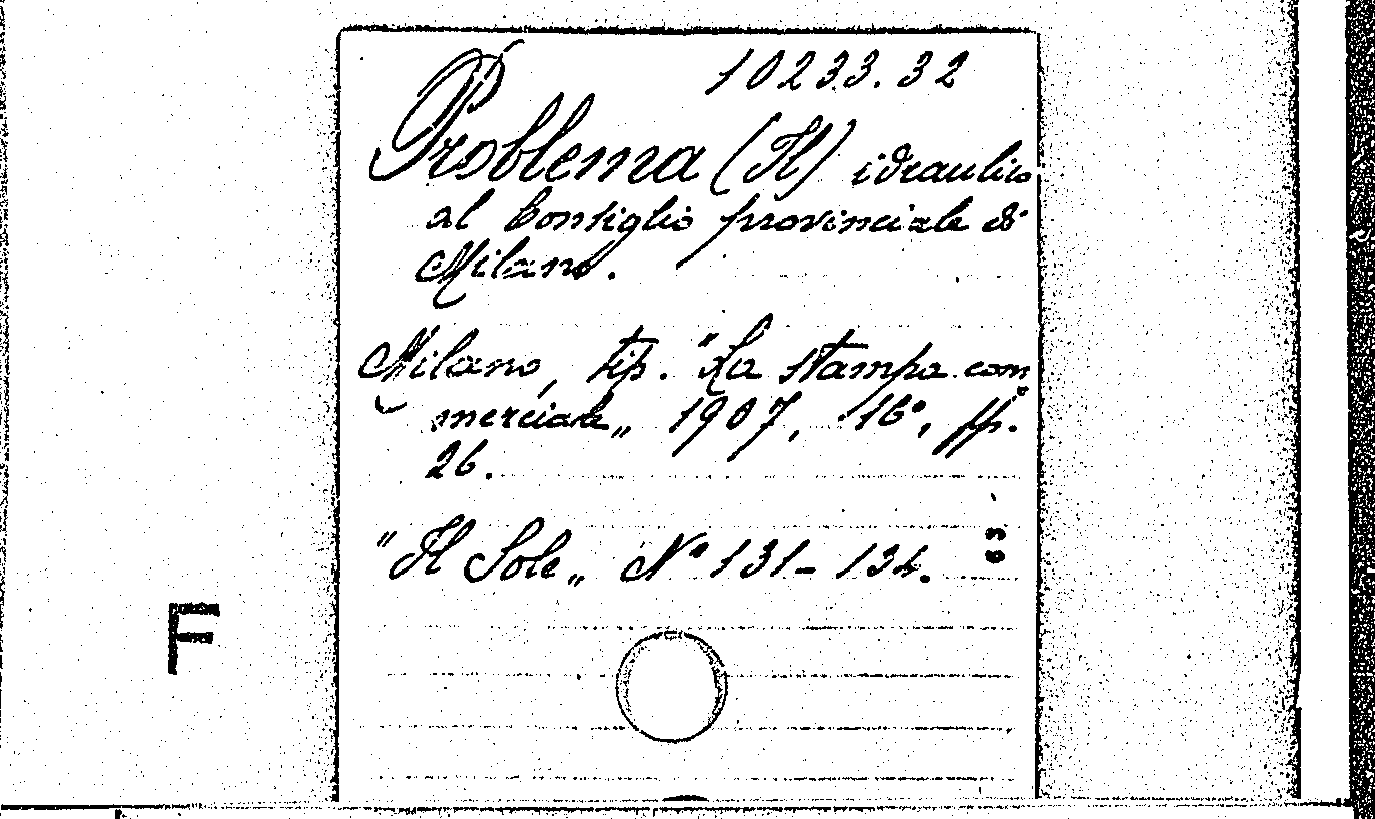 10233.32
Problema (Il) idraulico
al Consiglio provinciale di
Milano.
Milano, tip. "La stampa com„
merciale„ 1907, 16°, pp.
26.
"Il Sole„ N° 131-134.
63
F